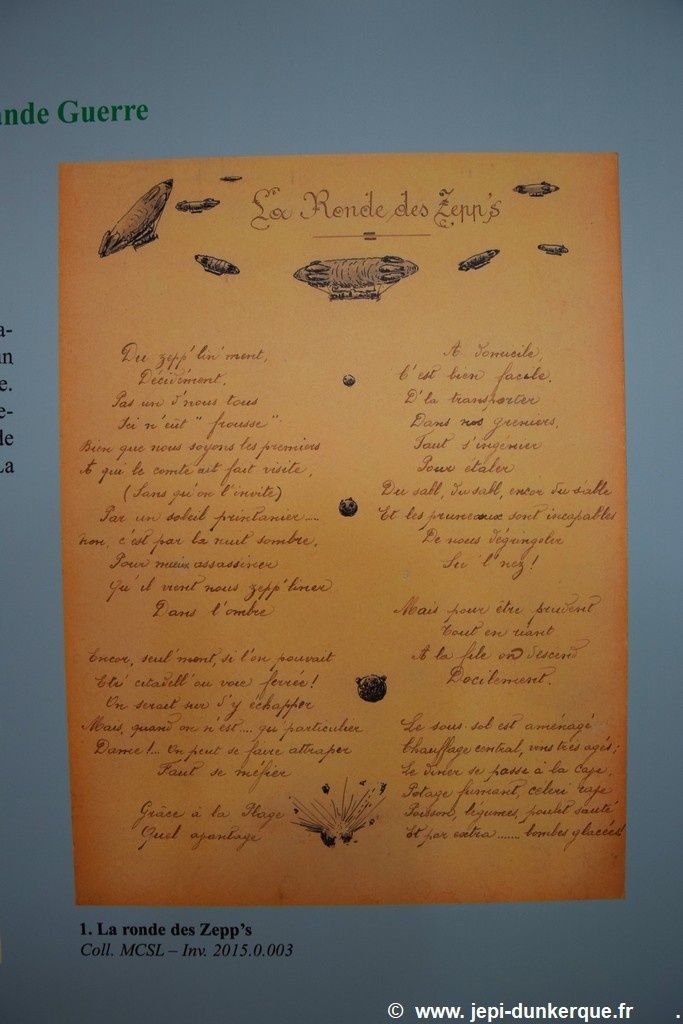 ande Guerre
a-
un
e.
e-
de
La
La Ronde des Zepp's
Du zepp'lin'ment,
Décidément,
Pas un d'nous tous
Ici n'eut "frousse"
Bien que nous soyons les premiers
A qui le comte ait fait visite,
(Sans qu'on l'invite)
Par un soleil printanier.....
non, c'est par la nuit sombre,
Pour mieux assassiner
Qu'il vient nous zepp'liner
Dans l'ombre
Encor, seul'ment, si l'on pouvait
Etr' citadell' ou voie ferrée!
On serait sur d'y échapper
Mais, quand on n'est.... qu particulier
Dame!... On peut se faire attraper
Faut se méfier
Grâce à la Plage
Quel avantage
A domicile,
C'est bien facile.
D'la transporter
Dans nos greniers,
Faut s'ingénier
Pour étaler
Du sabl, du sabl, encor du sable
Et les pruneaux sont incapables
De nous dégringoler
Su l'nez!
Mais pour être prudent
Tout en riant
A la file on descend
Docilement.
Le sous-sol est aménagé
Chauffage central, vins très agés;
Le diner se passe à la cave,
Potage fumant, céleri rape
Poisson, légumes, poulet sauté
Et par extra....... bombes glacées!
1. La ronde des Zepp's
Coll. MCSL – Inv. 2015.0.003
© www.jepi-dunkerque.fr .